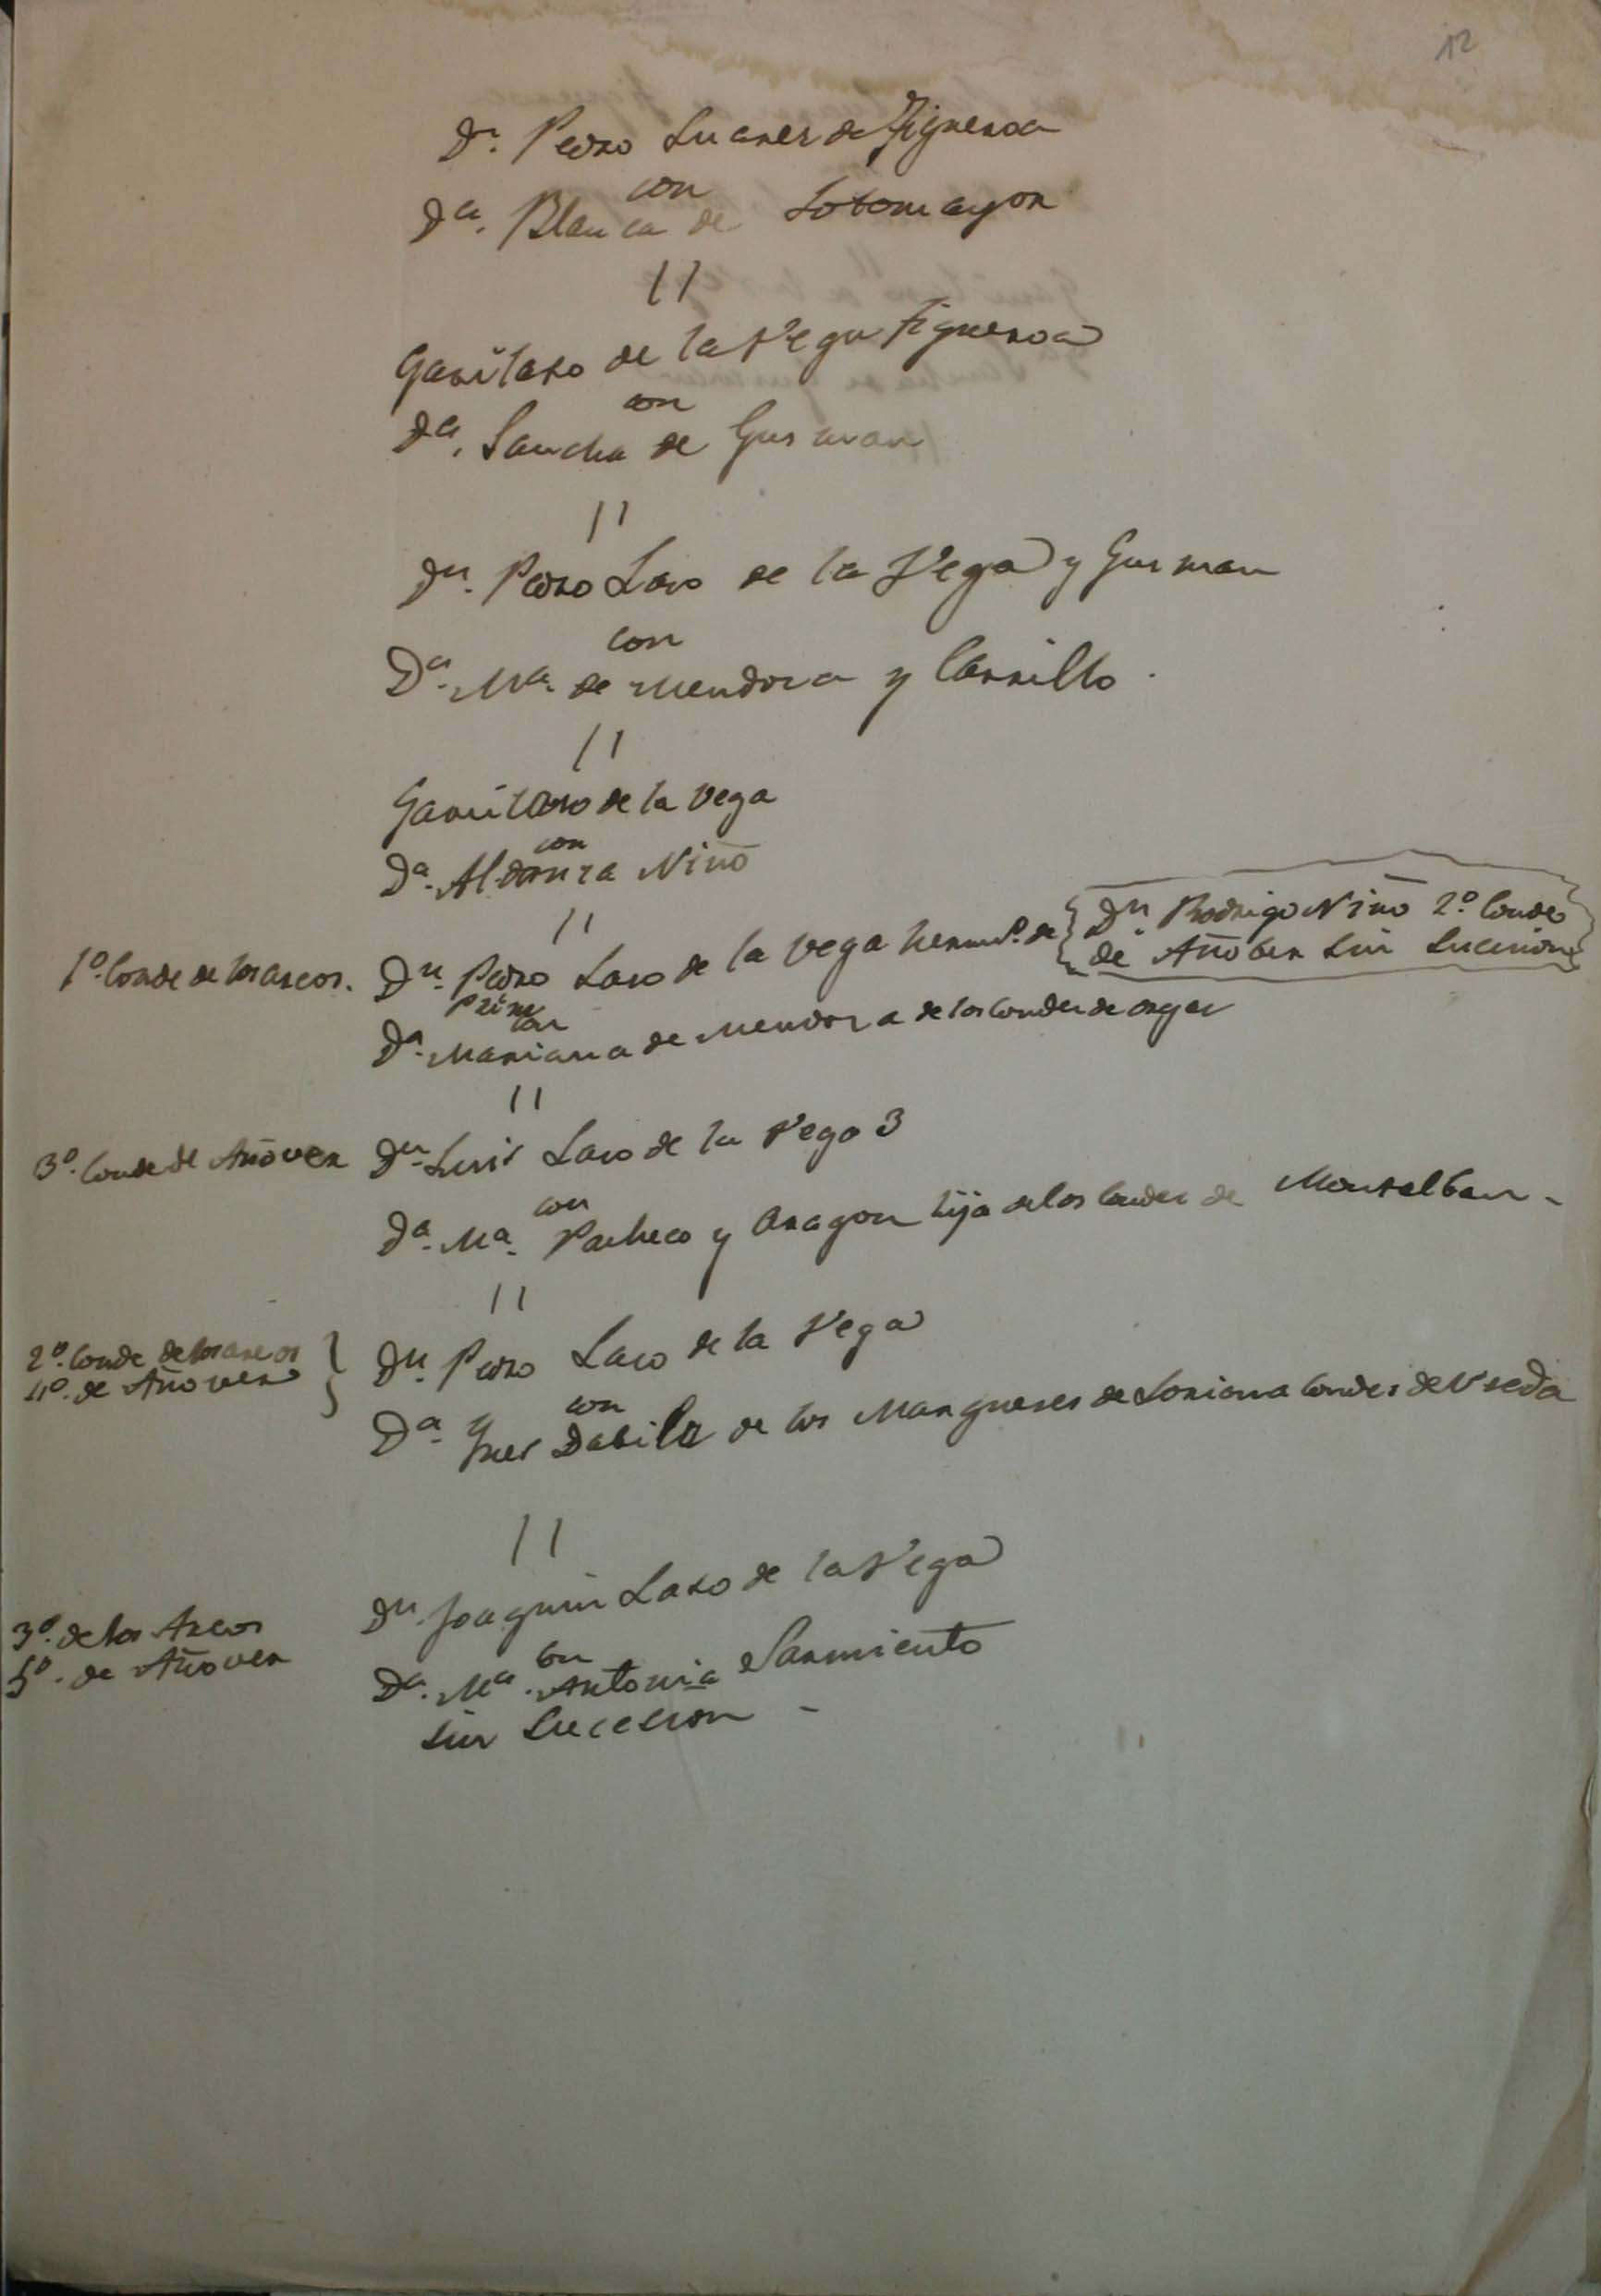 12
Dn. Pedro Suares de Figueroa
con
Da. Blanca de Sotomayor
Garcilaso de la Vega Figueroa
con
Da. Sancha de Gusman
Dn. Pedro Laso de la Vega y Gusman
con
Da. Ma. de Mendoza y Carrillo.
Garcilaso de la Vega
con
Da. Aldonza Niño
1º. Conde de los arcos. Dn. Pedro Laso de la Vega herm.º de { Dn. Rodrigo Niño 2º. Conde
de Añober sin sucesion }
con
Da. Mariana de Mendoza de los Condes de orgaz
3º. Conde de Añover Dn. Luis Laso de la Vega 3
con
Da. Ma. Pacheco y Aragon hija de los Condes de Montalban -
2º. Conde de los arcos
4º. de Añover } Dn. Pedro Laso de la Vega
con
Da. Ynes Dabila de los Marqueses de Loriana Condes de Useda
3º. de los Arcos Dn. Joaquin Laso de la Vega
5º. de Añover
con
Da. Ma. Antonia Sarmiento
sin sucesion -